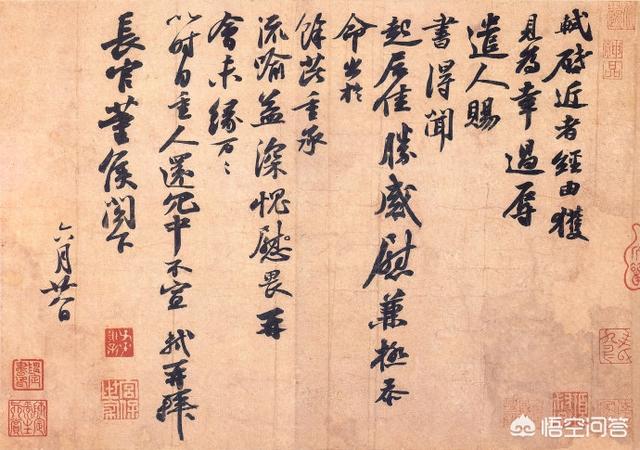 軾啟近者經由獲
見為幸過辱
遣人賜
書得聞
起居佳勝感慰兼極忝
命出於
餘芘重承
流喻益深愧慰畏再
會未緣万々
以時自重人還冗中不宣 軾再拜
長官董侯閣下
六月廿八日
悟空问答